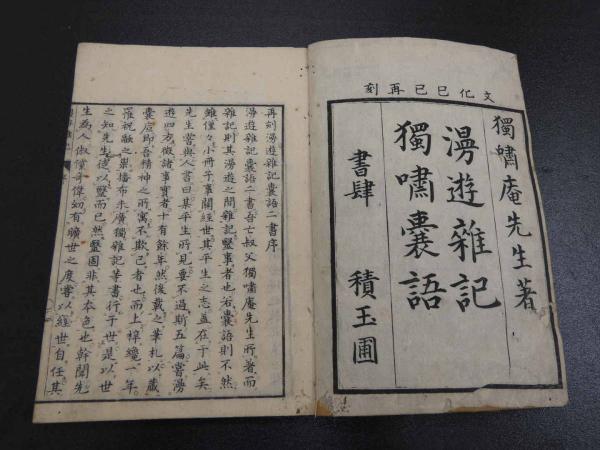 文化己巳再刻
獨嘯庵先生著
漫遊雜記
獨嘯囊語
書肆 積玉圃
再刻漫遊雜記囊語二書序
漫遊雜記囊語二書吾亡叔父獨嘯庵先生所著而
雜記則其漫遊之間雜記醫事者也若囊語則不然
雖僅々小冊子事關經世其平生之志蓋在于此矣
先生嘗與人書曰某平生所見要不過斯五篇當漫
遊四方徵諸事實者十有餘年然後載之筆札以藏
囊底即吾精神之所寓不欺己者也而上梓纔一年
罹祝融之災播布未廣獨雜記等書行于世是以世
之知先生徒以醫而已然醫固非其本色也幹聞先
生為人俶儻奇偉幼有曠世之度嘗以經世自任其